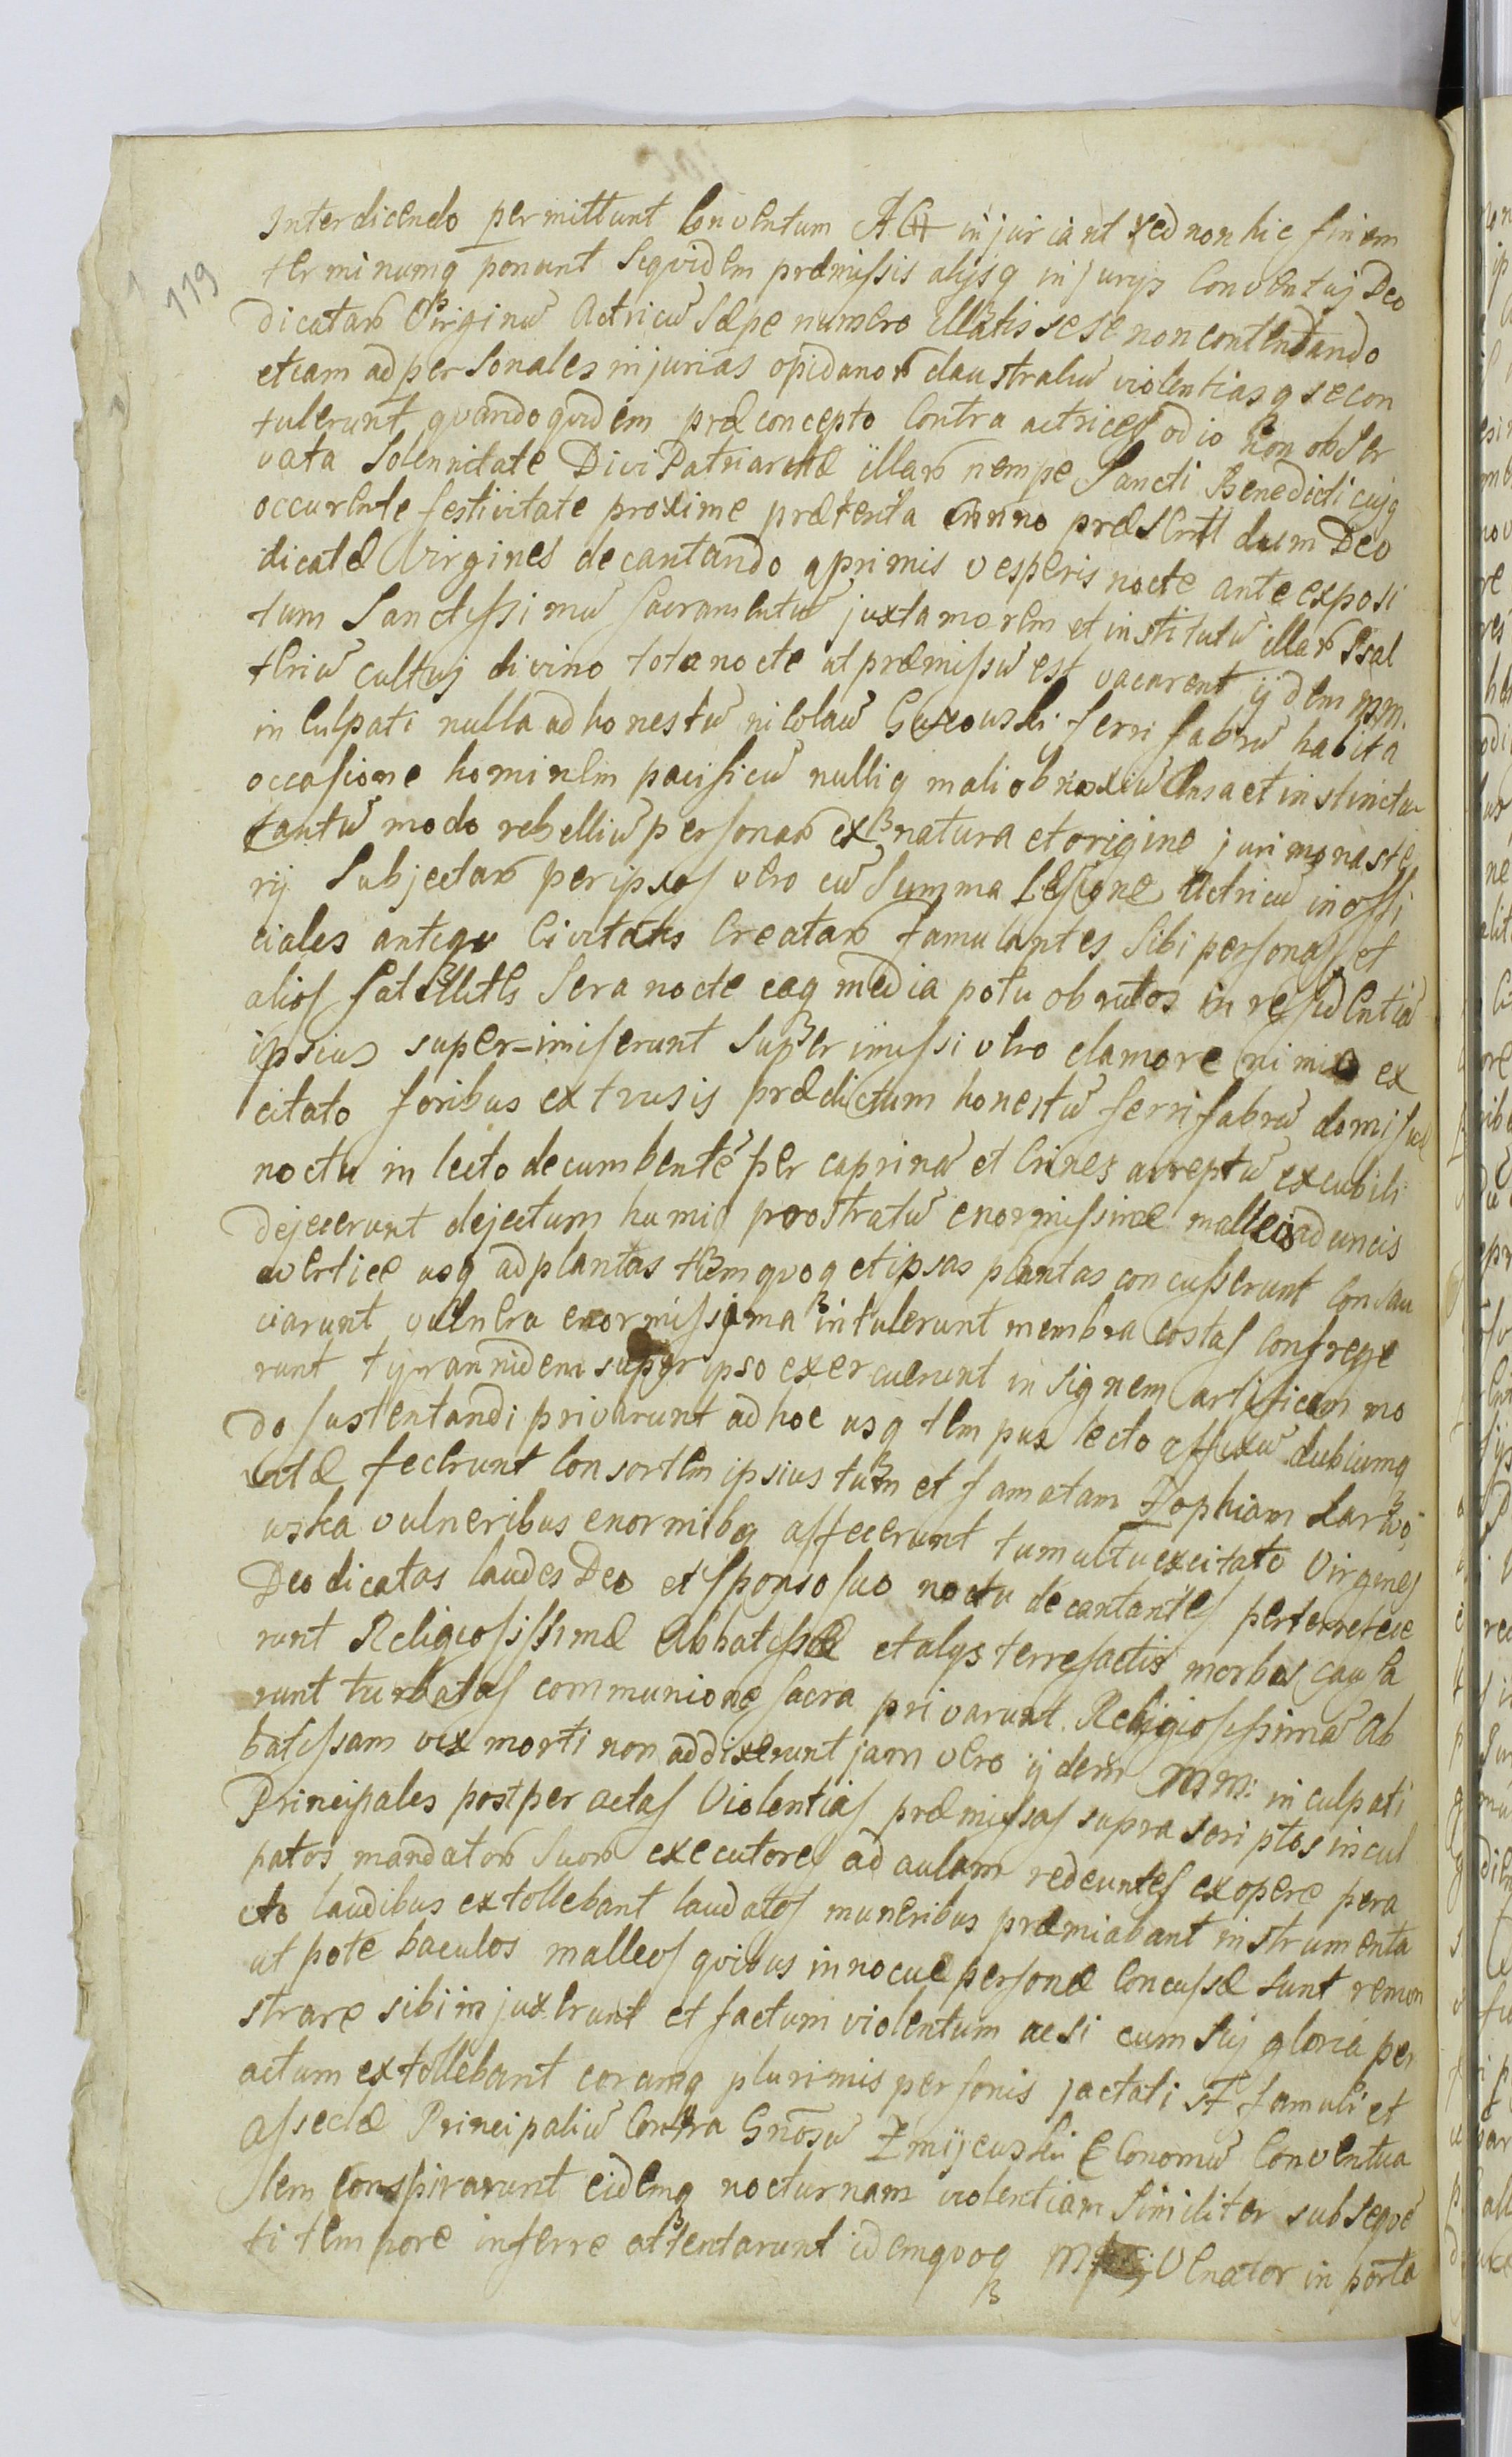 119
Interdicendo permittunt Conventum injuriant sed non hic finem
terminumq ponunt Seqvidem præmissis alijsq injurijs Conventuj Deo
dicatar Virginū Actricū Sæpe numero illatis sese non contentando
etiam ad personales injurias opidanor claustraliū violentiasq se con
tulerunt, qvandoqvidem præconcepto Contra actrices odio non obser
vata Solennitate Divi Patriarchæ illar nempe Sancti Benedicti cujq
occurente festivitate proxime præterita anno præsenti dum Deo
dicatæ Virgines decantando a primis vesperis nocte ante exposi
tum Sanctissimū Sacramentū juxta morem et institutū illar Psal
teriū cultuj divino tota nocte ut præmissū est vacarent ijdem MM.
inculpati nulla ad honestū nicolaū Guzowski ferri fabrū habita
occasione hominem pacificū nulliq mali obnoxiū Ansa et instinctu
tantū modo rebelliū personar ex natura et origine juri monaste
rij Subjectar per ipsos vero cū Summa Læsione Actricū in offi
ciales antiqv Civitatis Creatar famulantes Sibi personas et
alios satellites Sera nocte eaq media potu obrutos in residentiā
ipsius super-imiserunt Super imissi vero clamore nimio ex
citato foribus extrusis prædictum honestū ferrifabrū domi suæ
noctu in lecto decumbentē per caprinā et Crines arreptū ex cubili
dejecerunt dejectum humiq prostratū enormissime malleis aduncis
a vertice usq ad plantas itemqvoq et ipsas plantas concusserunt Consau
ciarunt vulnera enormissima intulerunt membra costas Confrege
runt tyrannidem super ipso exercuerunt insignem artificem mo
do sustentandi privarunt ad hoc usq tempus lecto affixū dubiumq
vitæ fecerunt Consortem ipsius tum et famatam Zophiam
uska vulneribus enormibq affecerunt tumultu excitato Virgines
Deo dicatas laudes Deo et Sponso suo noctu decantantes perterrefece
runt Religiosissimæ Abbatissæ et alijs terrefactis morbos causa
runt turbatas communione sacra privarunt Religiosissimā Ab
batissam vix morti non addixerunt jam vero ijdem MM: inculpati
Principales post peractas Violentias præmissas supra scriptos incul
patos mandator Suor executores ad aulam redeuntes ex opere pera
cto laudibus extollebant laudatos muneribus præmiabant instrumenta
ut pote baculos malleos qvibus innocuæ personæ Concussæ sunt remon
strare sibi injuxerunt et factum violentum ac si cum suj gloria per
actum extollebant coramq plurimis personis jactati st famuli et
Asseclæ Principaliū Contra Gnosū Zmijewski Œconomū Conventua
lem Conspirarunt eidemq nocturnam violentiam Similiter subseqvē
ti tempore inferre attentarunt idemqvoq Venator in porta